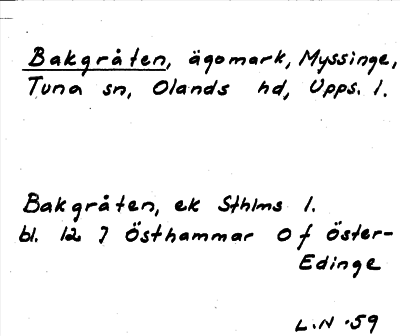 Bakgråten, ägomark, Myssinge,
Tuna sn, Olands hd, Upps. l.
Bakgråten, ek Sthlms l.
bl. 12 7 Östhammar 0 f Öster-
Edinge
L.N -59